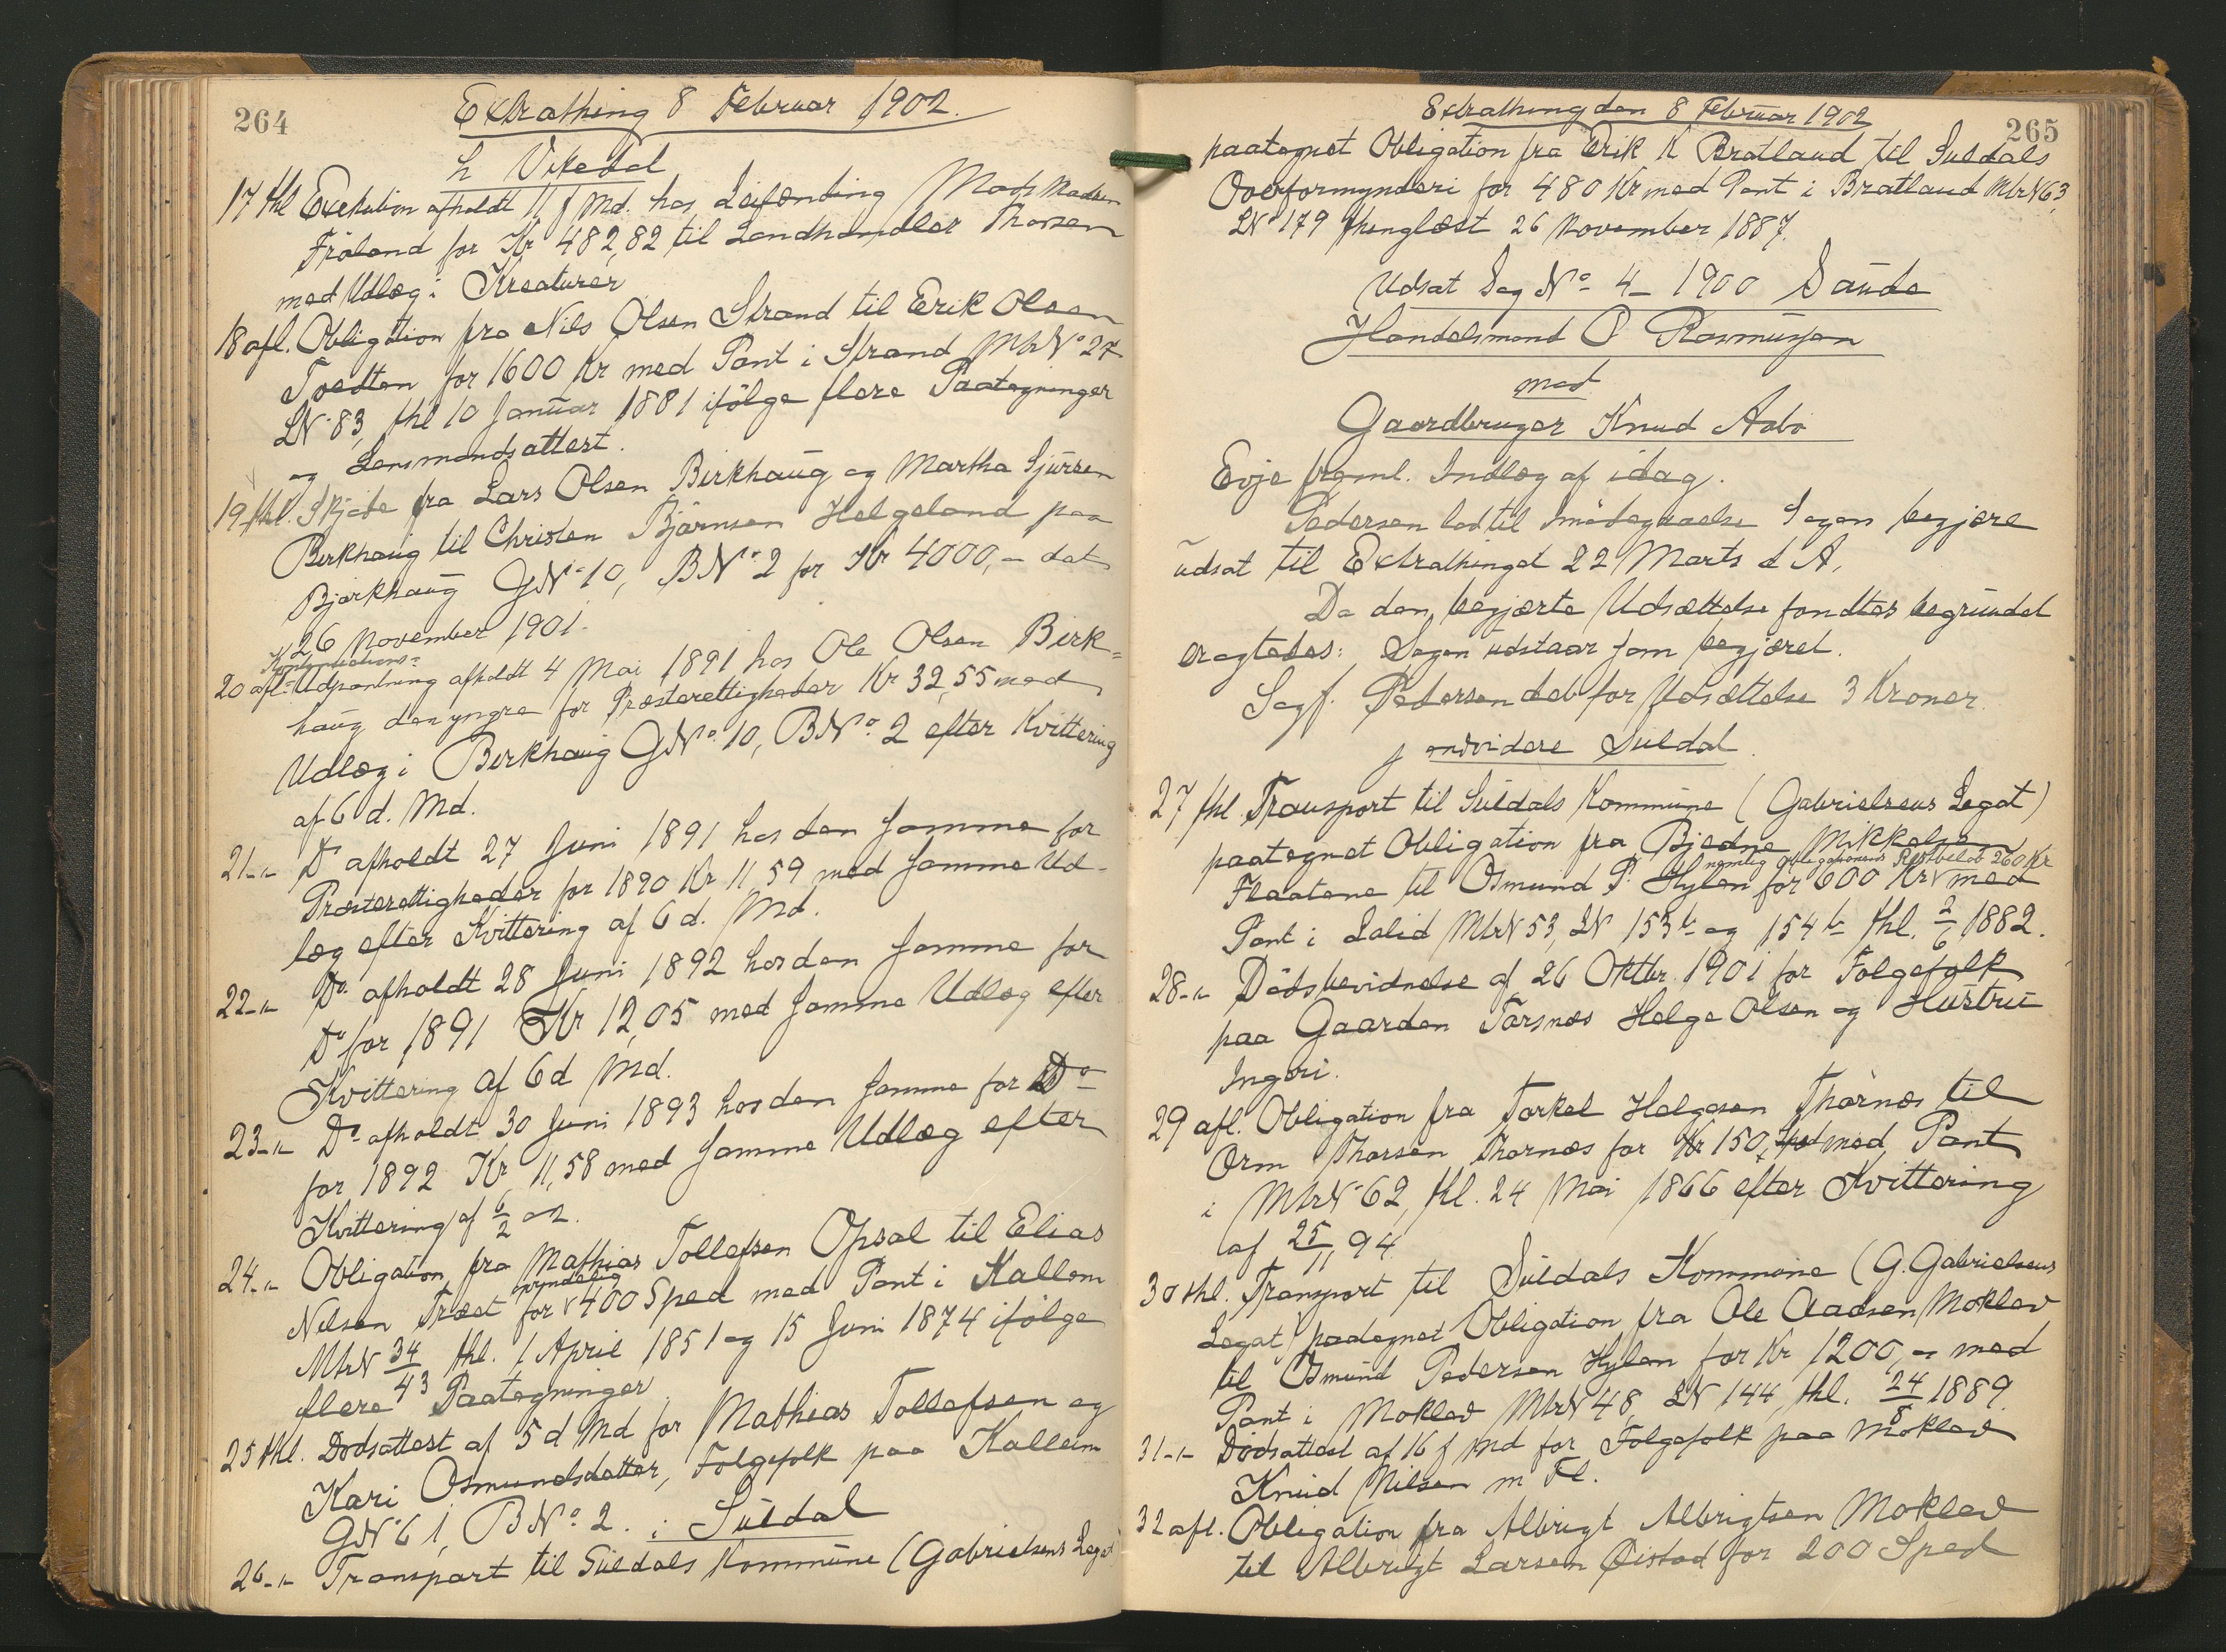 264
Extrathing 8 Februar 1902.
h Vikedal
17 thl Exekution afholdt 11 f Md. hos Leilænding Mads Madsen
Fröland for Kr 482,82 til Landhandler Thorsen
med Udlæg i Kreaturer
18 afl. Obligation fra Nils Olsen Strand til Erik Olsen
Tvedten for 1600 Kr med Pant i Strand MtrNo 27
LN 83, thl 10 Januar 1881 ifölge flere Paategninger
og Lensmandsattest.
19 thl. Skjöde fra Lars Olsen Birkhaug og Martha Sjursen
Birkhaug til Christen Björnsen Helgeland paa
Bjørkhaug GNo 10, BNo 2 for Kr 4000,- dat
26 November 1901.
Konfirmations-
20 afl. Udpantning afholdt 4 Mai 1891 hos Ole Olsen Birk=
haug den yngre for Præsterettigheder Kr 32,55 med
Udlæg i Birkhaug GNo. 10, BNo. 2 efter Kvittering
af 6 d. Md.
21 -"- Do afholdt 27 Juni 1891 hos den samme for
Præsterettigheder for 1890 Kr 11 59 med samme Ud-
læg efter Kvittering af 6 d. Md.
22 -"- Do afholdt 28 Juni 1892 hos den samme for
Do for 1891 Kr 12,05 med samme Udlæg efter
Kvittering af 6 d Md.
23 -"- Do afholdt 30 Juni 1893 hos den samme for Do
for 1892 Kr 11,58 med samme Udlæg efter
Kvittering af 6/2 02.
24 -"- Obligation fra Mathias Tollefsen Opsal til Elias
Nilsen Træet for 400 Sped med Pant i Kallem
MtrN 34/43 thl. 1 April 1851 og 15 Juni 1874 ifölge
flere Paategninger
25 thl. Dodsattest af 5 d Md for Mathias Tollefsen og
Kari Osmundsdatter, Folgefolk paa Kalleim
GN 61, BNo. 2. i Suldal
26 -"- Transport til Suldals Kommune (Gabrielsens Legat)
265
Extrathing den 8 Februar 1902
paategnet Obligation fra Erik K Bratland til Suldals
Overformynderi for 480 Kr med Pant i Bratland MtrN 63,
LNo 179 thinglæst 26 November 1887.
Udsat Sag No 4 - 1900 Saude
Handelsmand O Rasmussen
mod
Gaardbruger Knud Aabö
Evje freml. Indlæg af idag.
Pedersen lod til Imödegaaelse Sagen begjære
udsat til Extrathinget 22 Marts d A.
Da den begjærte Udsættelse fandtes begrundet
eragtedes: Sagen udstaar som begjæret.
Sagf. Pedersen deb for Udsættelse 3 Kroner.
j endvidere Suldal
27 thl Transport til Suldals Kommune (Gabrielsens Legat)
paategnet Obligation fra Bjedne Mikkelsen
nemlig obligationens Restbelöb 260 Kr
Flaatene til Osmund P. Hylen for 600 Kr med
Pant i Lalid MtrN 53, LN 153b og 154b thl. 2/6 1882.
28 -"- Dödsbevidnelse af 26 Oktbr. 1901 for Folgefolk
paa Gaarden Tarsnæs Helge Olsen og Hustru
Ingeri.
29 afl. Obligation fra Torkel Helgesen Thornæs til
Orm Thorsen Thornæs for Kr 150, Sped med Pant
i MtrNo 62, thl. 24 Mai 1866 efter Kvittering
af 25/11 94.
30 thl. Transport til Suldals Kommune (G. Gabrielsens
Legat) paategnet Obligation fra Ole Aadsen Mokleiv
til Osmund Pedersen Hylen for Kr 1200,- med
Pant i Mokleiv MtrN 48, LN 144, thl. 24/8 1889.
31 -"- Dödsattest af 16 f Md for Folgefolk paa Mokleiv
Knud Nilsen m Fl.
32 afl. Obligation fra Albrigt Albrigtsen Mokleiv
til Albrigt Larsen Øistad for 200 Sped